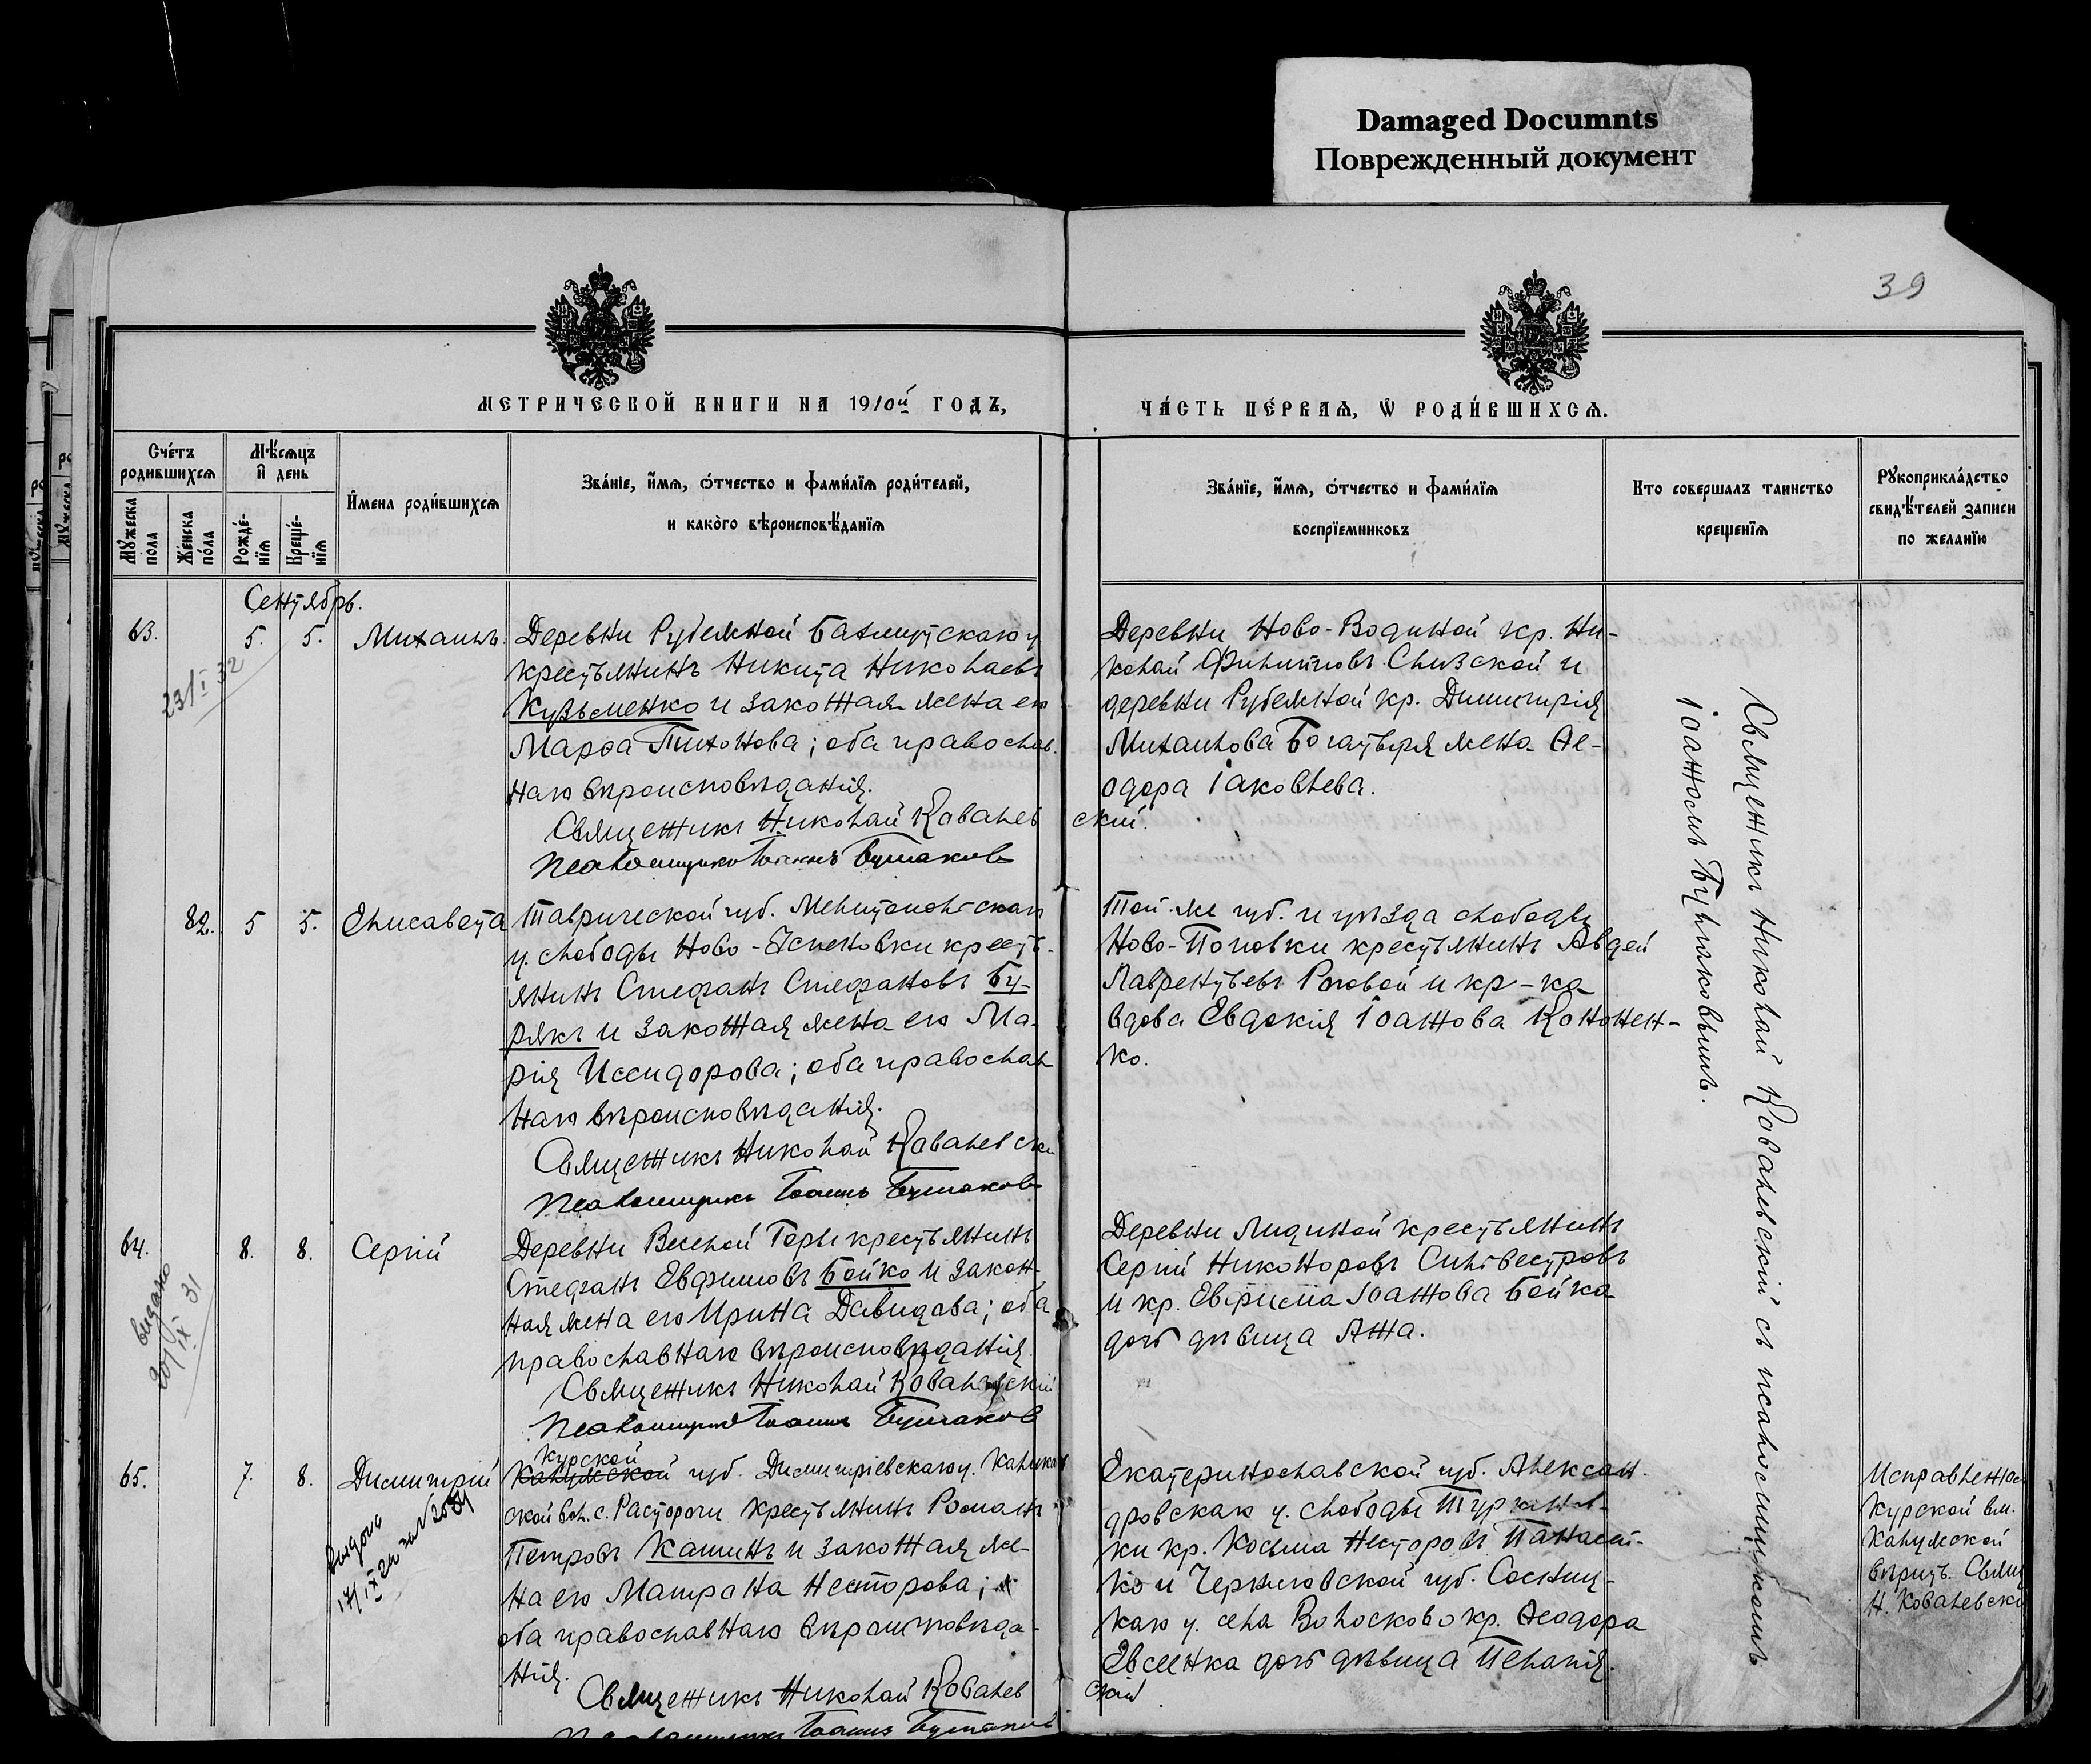 Damaged Documnts
Поврежденный документ
39
МЕТРИЧЕСКОЙ КНИГИ НА 1910й ГОДЪ,
ЧАСТЬ ПЕРВАЯ, Ѡ РОДИВШИХСЯ.
Счетъ родившихся
Мужеска пола
Женска пола
Мѣсяцъ и день
Рожденія
Крещенія
Имена родившихся
Званіе, имя, отчество и фамилія родителей,
и какого вѣроисповѣданія
Званіе, имя, отчество и фамилія
воспріемниковъ
Кто совершалъ таинство
крещенія
Рукоприкладство
свидѣтелей записи
по желанію
Сентябрь.
63.
5.
5.
Михаилъ.
23/I 32
Деревни Рубежной Бахмутскаго у.
крестьянинъ Никита Николаевъ
Кузьменко и законная жена его
Марѳа Тихонова; оба православ.
наго вѣроисповѣданія.
Священникъ Николай Ковалевский.
Псаломщикъ Іоаннъ Булмаковъ
Деревни Ново-Водяной кр. Ни-
колай Филипповъ Сливской и
деревни Рубежной кр. Димитрія
Михаилова Богатыря жена Ѳе-
одора Іаковлева.
82.
5
5.
Елисавета
Таврической губ. Мелитопольскаго
у. слободы Ново-Успеновки кресть-
янинъ Стефанъ Стефановъ Бу-
рякъ и законная жена его Ма-
рія Исидорова; оба православ
наго вѣроисповѣданія.
Священникъ Николай Ковалевскій
Псаломщикъ Іоаннъ
Той-же губ. и уѣзда слободы
Ново-Поповки крестьянинъ Авдей
Лаврентьевъ Роговой и кр-ка
вдова Евдокія Іоаннова Кононен-
ко.
64.
8.
8.
Сергій
видано
20/IX 31
Деревни Веселой Горы крестьянинъ
Стефанъ Евфимовъ Бойко и закон-
ная жена его Ирина Давидова; оба
православнаго вѣроисповѣданія.
Священникъ Николай Ковалевскій
Псаломщикъ Іоаннъ
Деревни Лидиной крестьянинъ
Сергій Никоноровъ Сильвестровъ
и кр. Евфимія Іоаннова Бойка
дочь дѣвица Анна.
65.
7.
8.
Димитрій
Выдано
17/IX
Курской
Калужской губ. Димитріевскаго у.
ской вол. с. Расторочи крестьянинъ Романъ
Петровъ Кашинъ и законная же-
на его Матрона Несторова;
оба православнаго вѣроисповѣда-
нія.
Священникъ Николай Ковалевскій
Псаломщикъ Іоаннъ
Екатеринославской губ. Алексан-
дровскаго у. слободы
ки кр. Косьма Несторовъ Панасен-
ко и Черниговской губ. Сосниц-
каго у. села Волосково кр. Ѳеодора
Евсенка дочь дѣвица Пелагія.
Священникъ Николай Ковалевскій съ псаломщикомъ
Іоанномъ
Исправленное
Курской вм.
Калужской
вѣрить. Свящ
Н. Ковалевскій